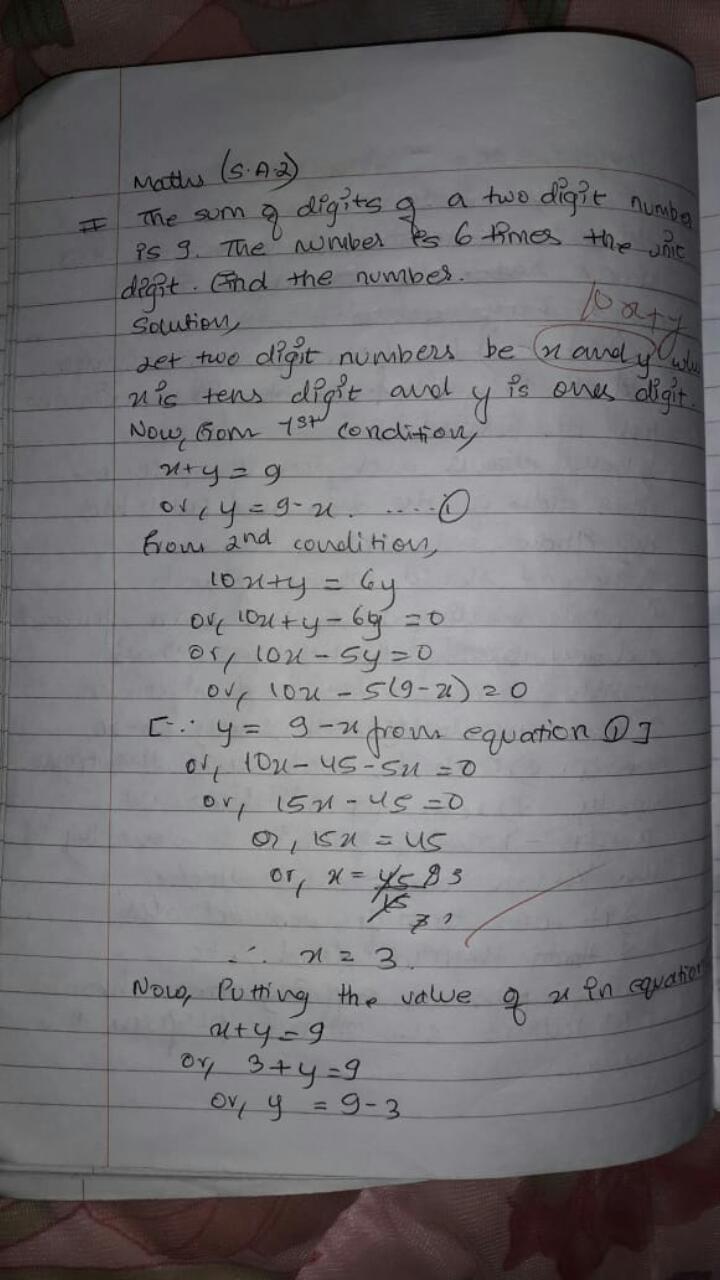 Maths (S.A.2)
II The sum of digits of a two digit number
is 9. The number is 6 times the unit
digit. Find the number.
Solution,
10x+y
Let two digit numbers be x and y
x is tens digit and y is ones digit.
Now, from 1st condition,
x+y = 9
or, y = 9-x. ..... ①
From 2nd condition,
10x+y = 6y
or, 10x+y-6y = 0
or, 10x - 5y = 0
or, 10x - 5(9-x) = 0
[∵ y = 9-x from equation ①]
or, 10x - 45 - 5x = 0
or, 15x - 45 = 0
or, 15x = 45
or, x = 45 3
15
∴ x = 3.
Now, Putting the value of x in equation
x+y = 9
or, 3+y = 9
or, y = 9-3